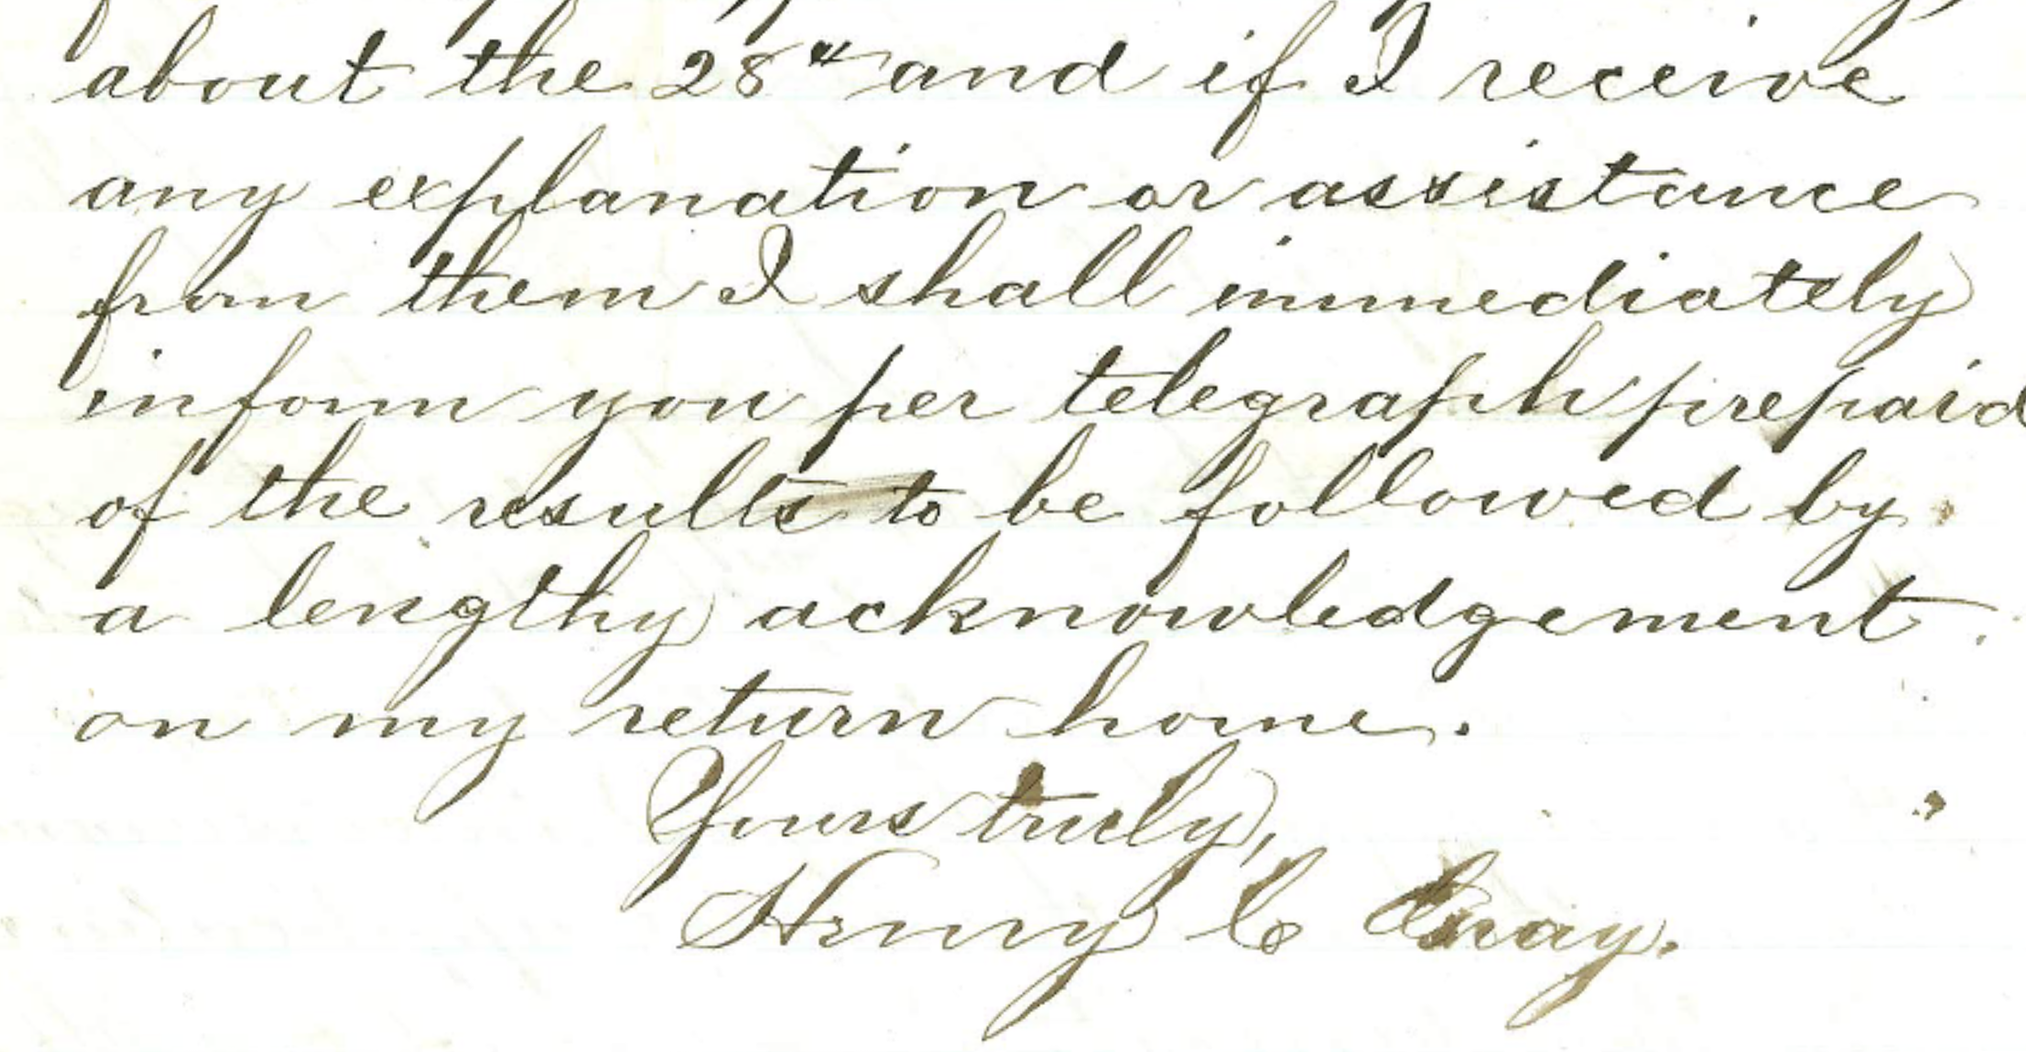 about the 28th and if I receive
any explanation or assistance
from them I shall immediately
inform you per telegraph prepaid
of the results to be followed by
a lengthy acknowledgement
on my return home.
Yours truly,
Henry C